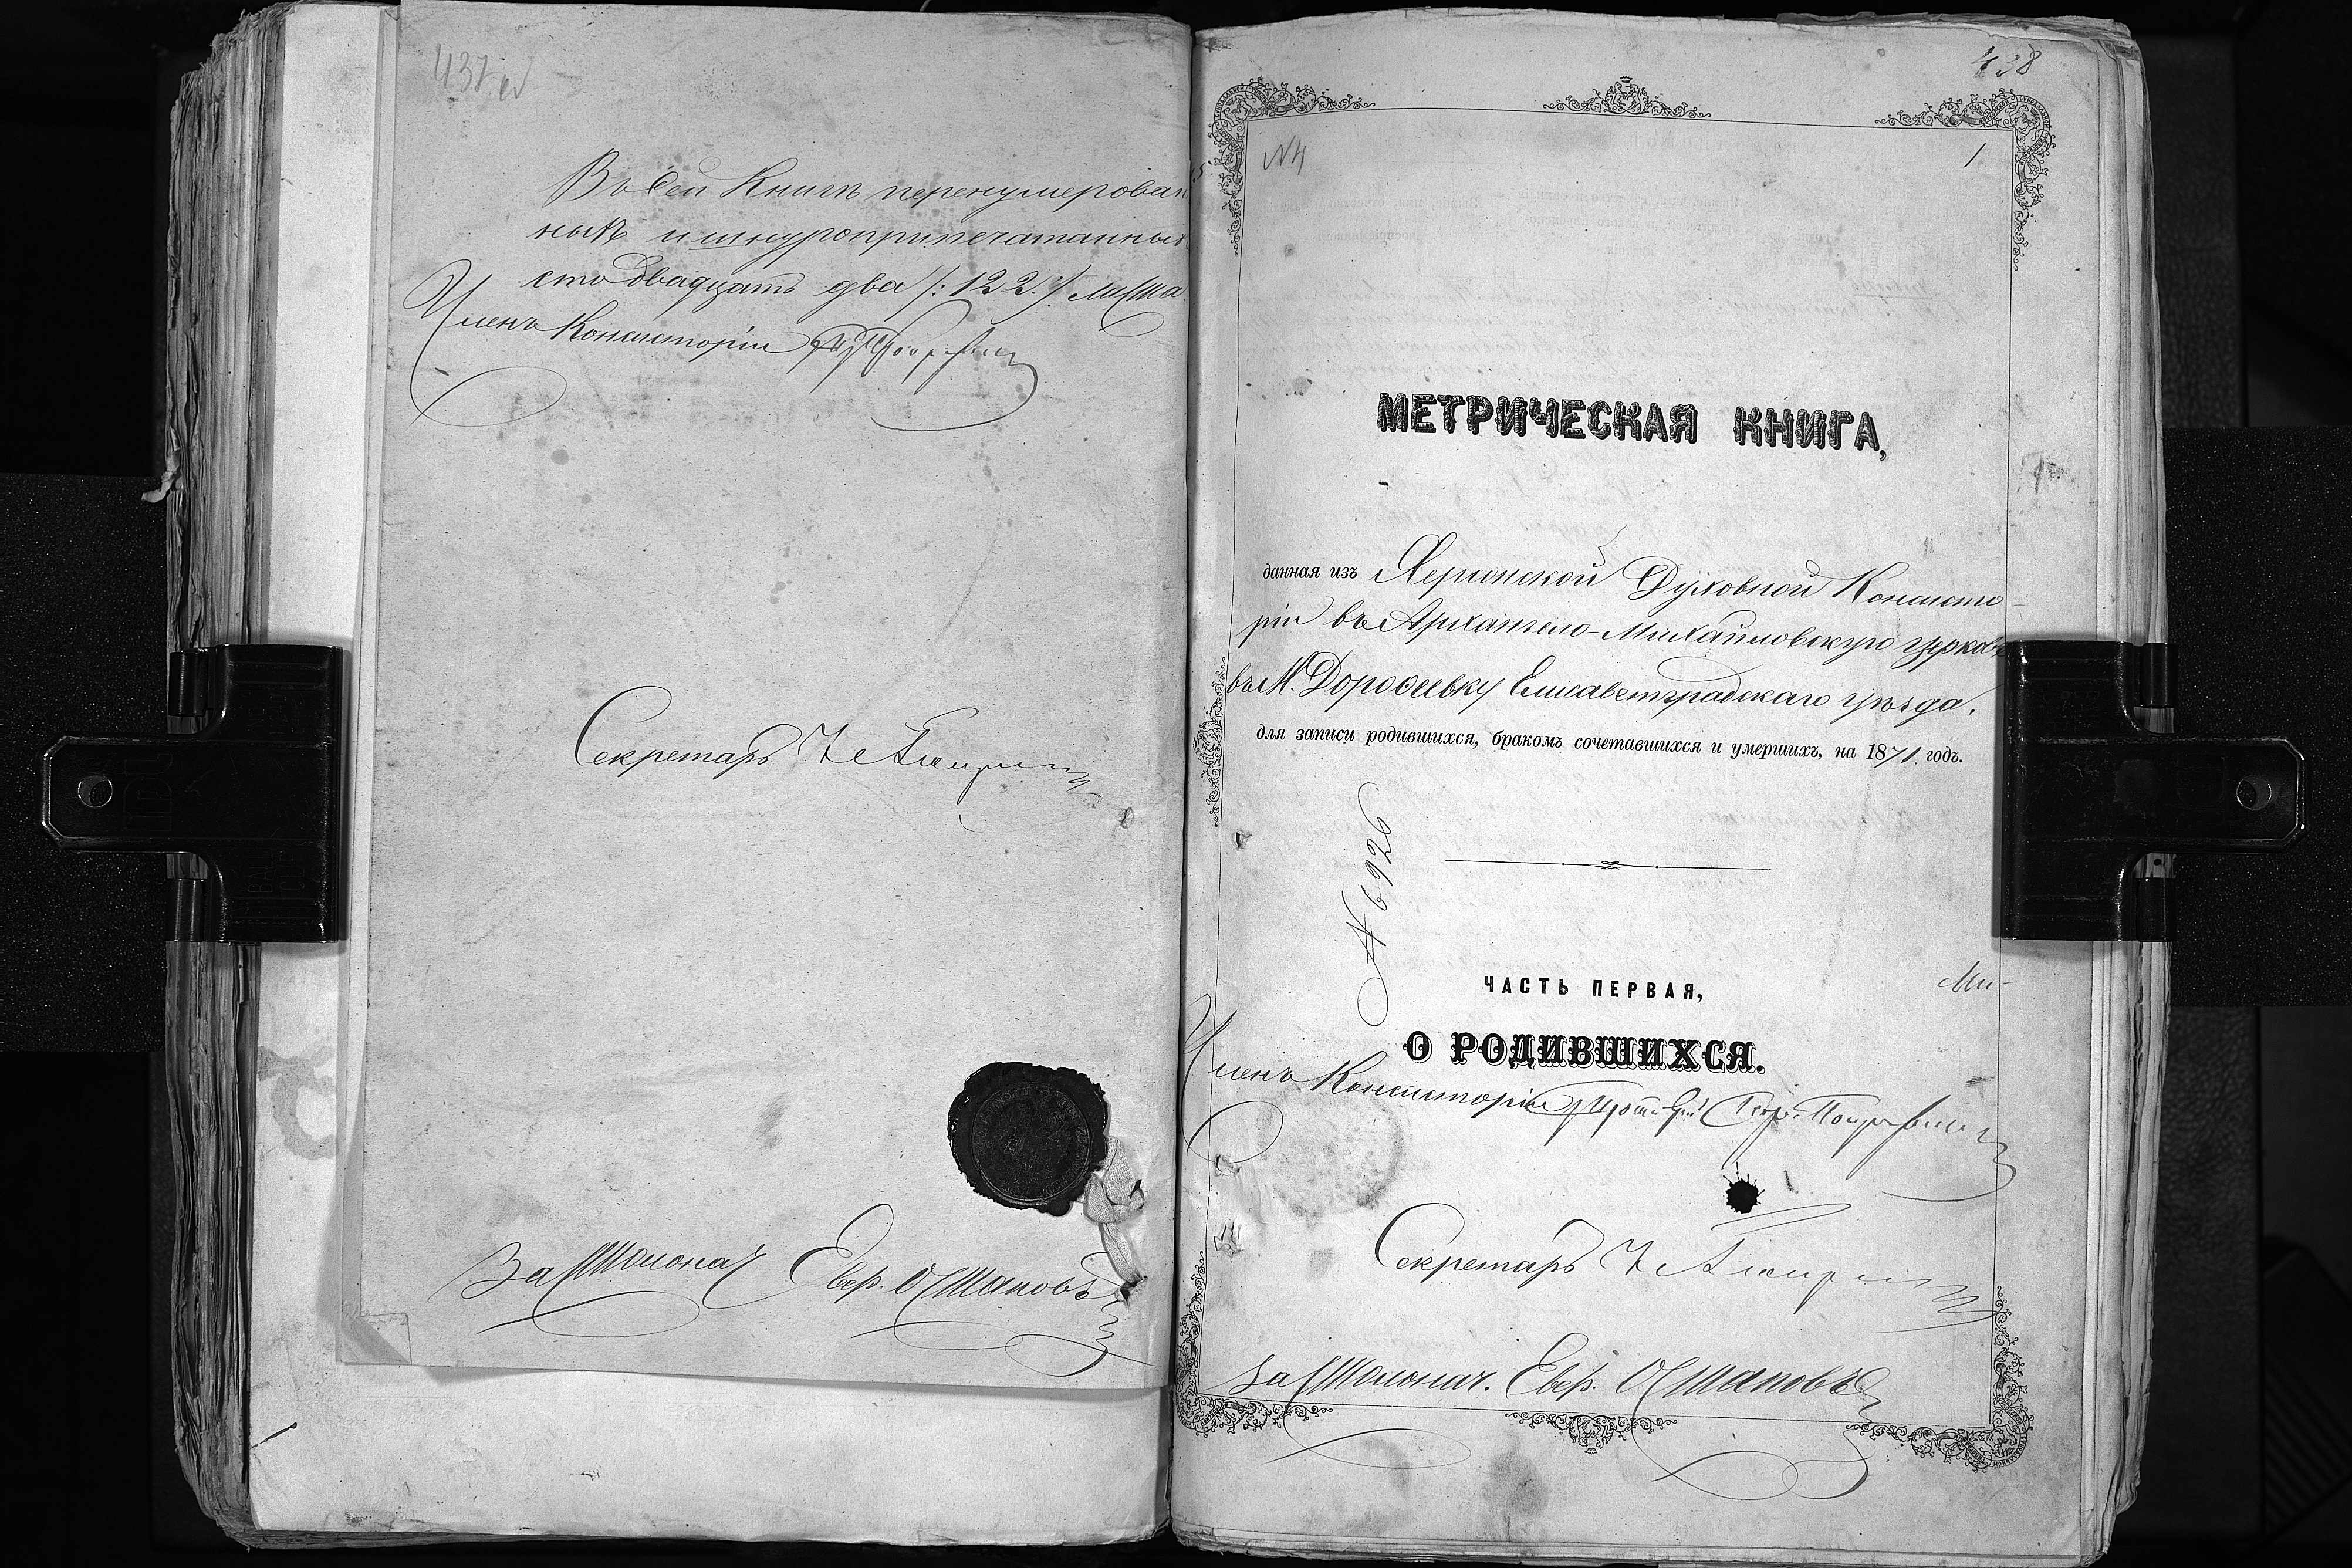 437 об
Въ сей Книгѣ перенумерован
ныхъ и шнуроприпечатанныхъ
сто двадцать два /:122:/ листа.
Членъ Консисторіи
Секретарь
За Столонач. Евф. Остаповъ
438
№4
1
МЕТРИЧЕСКАЯ КНИГА,
данная изъ Херсонской Духовной Консисто-
ріи въ Архангело-Михайловскую церковь
въ М. Дороѳеевку Елисаветградскаго уѣзда.
для записи родившихся, бракомъ сочетавшихся и умершихъ, на 1871. годъ.
№ 6926
ЧАСТЬ ПЕРВАЯ,
Ми-
О РОДИВШИХСЯ.
Членъ Консисторіи Протоіерей
Секретарь
За Столонач. Евф. Остаповъ